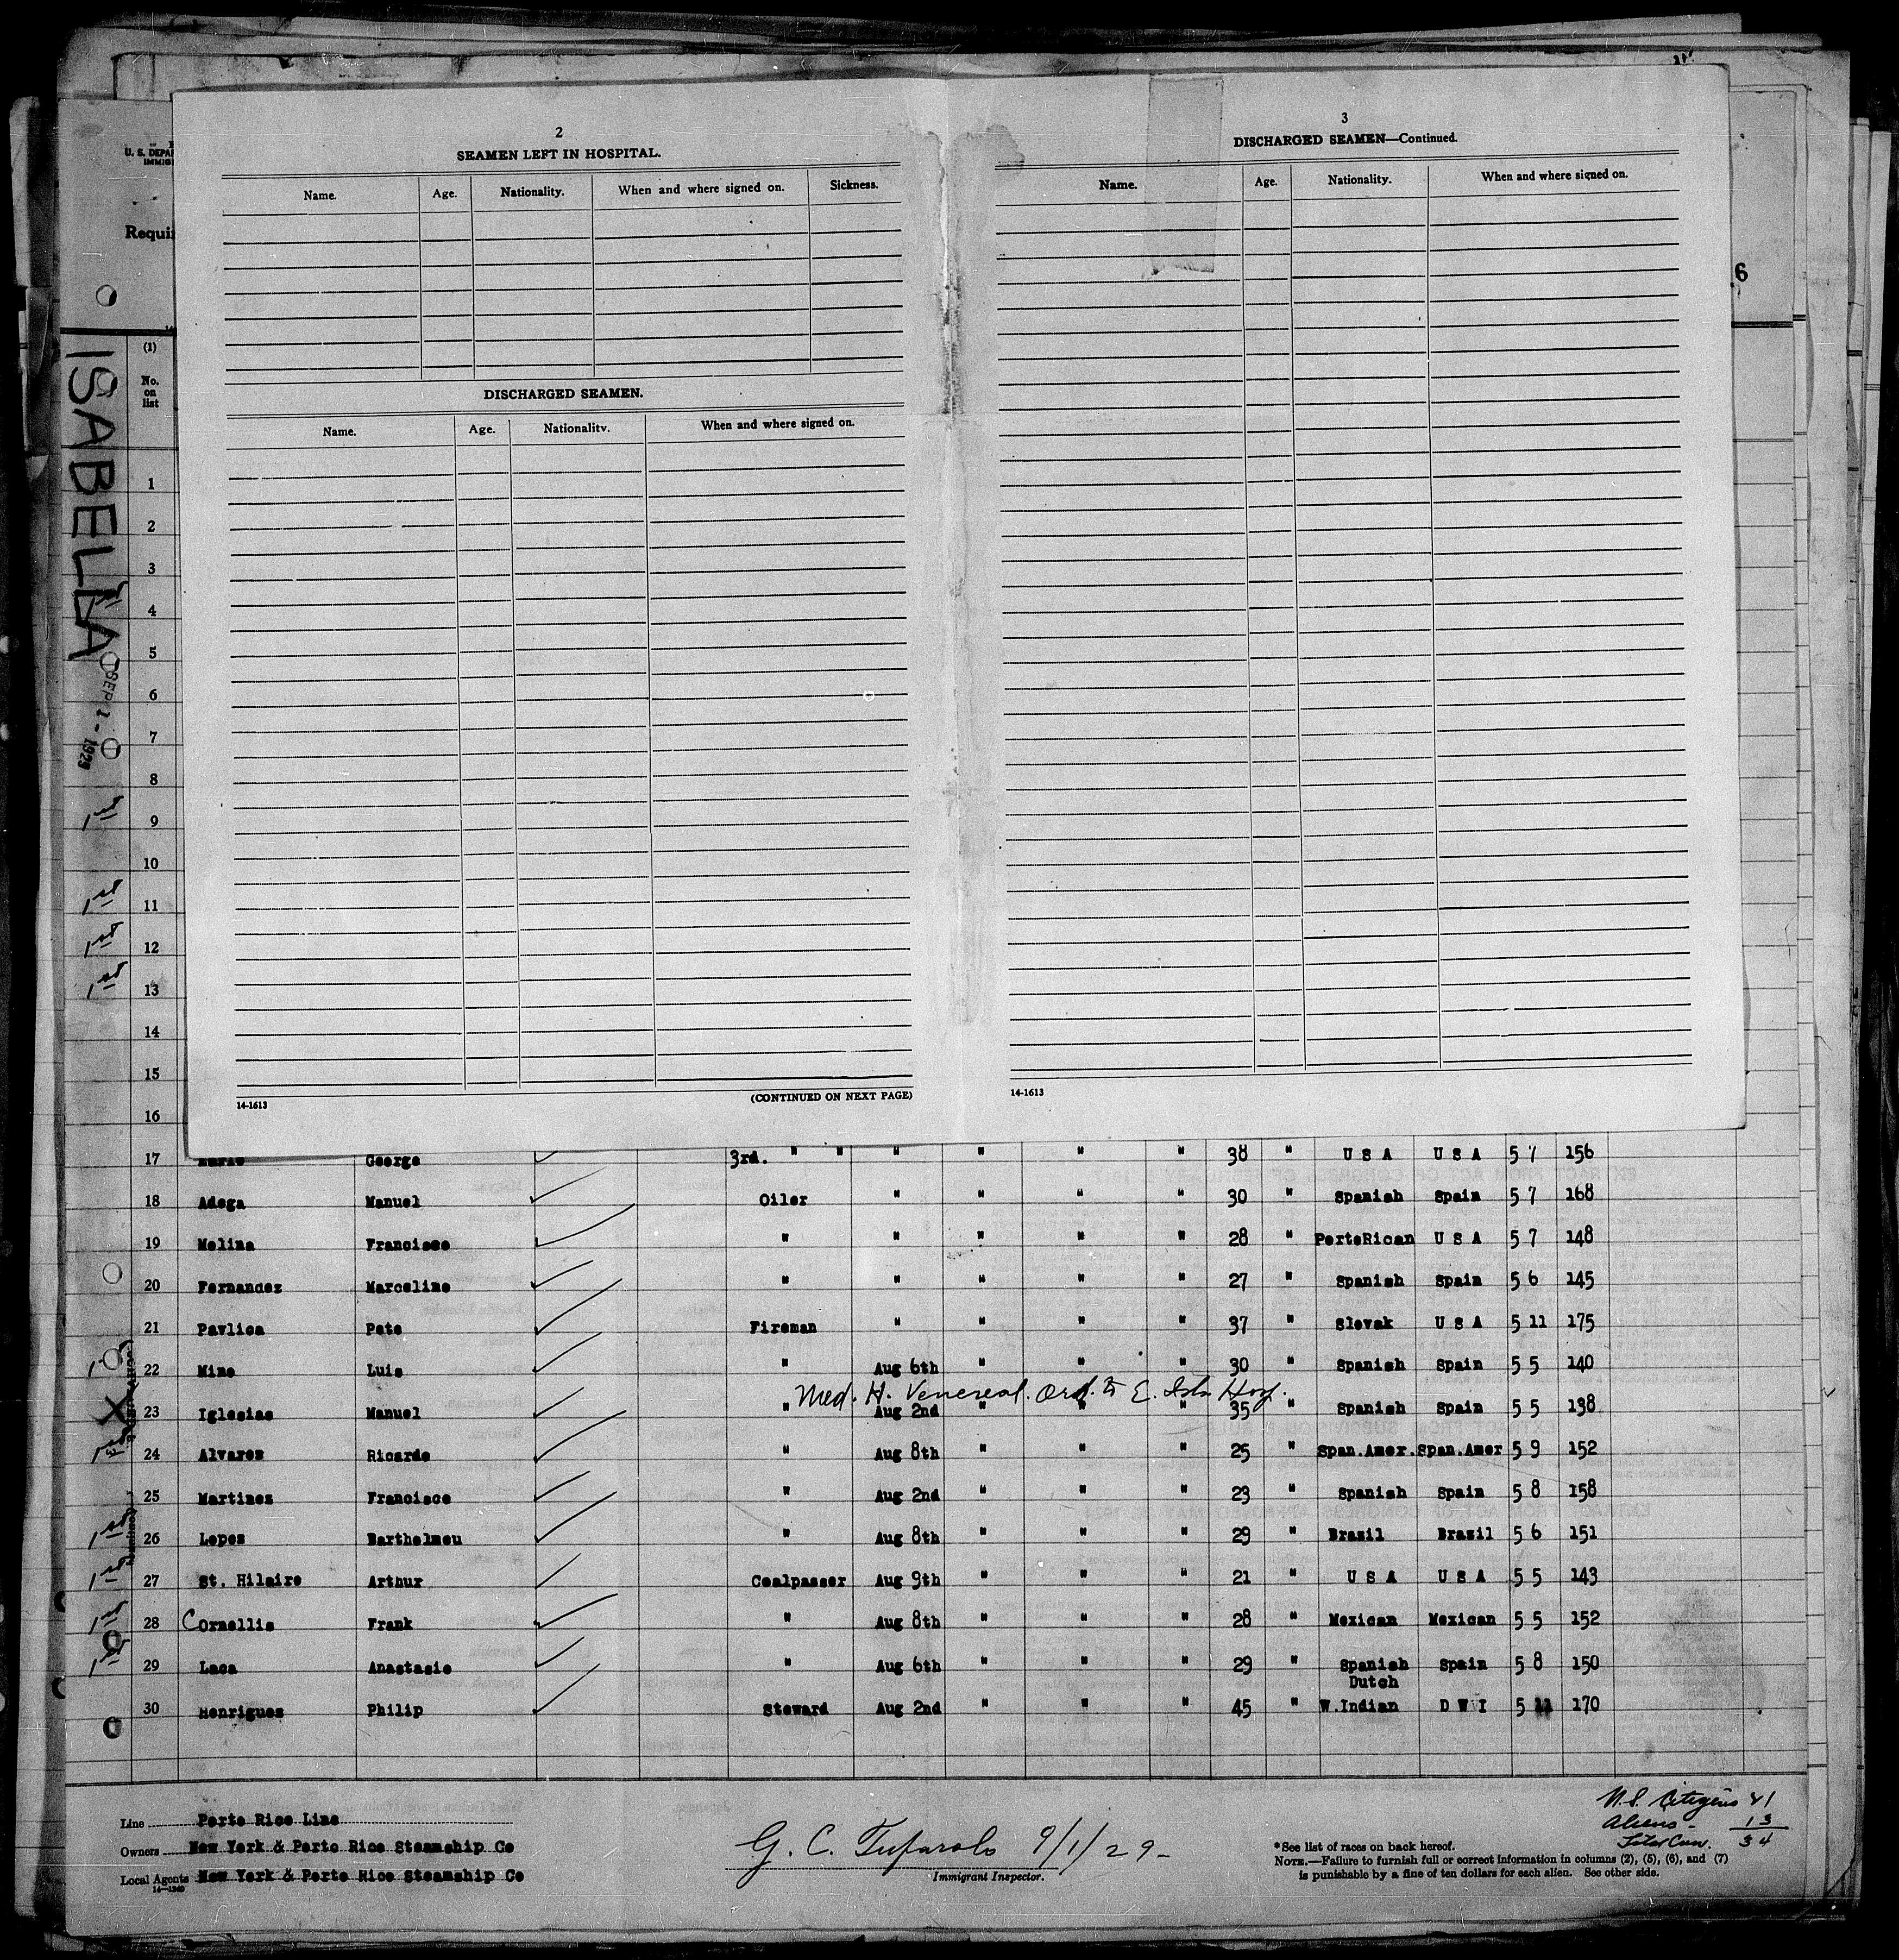 2
SEAMEN LEFT IN HOSPITAL.
Name. Age. Nationality. When and where signed on. Sickness.
DISCHARGED SEAMEN.
Name. Age. Nationality. When and where signed on.
14-1613 (CONTINUED ON NEXT PAGE)
3
DISCHARGED SEAMEN—Continued.
Name. Age. Nationality. When and where signed on.
14-1613
U. S. DEPA
IMMIG
Requi
6
ISABELLA
SEP 1 - 1929
(1)
No.
on
list
1
2
3
4
5
6
7
8
9
10
11
12
13
14
15
16
17 George 3rd. " " " " " " 38 " U S A U S A 5 7 156
18 Adega Manuel Oiler " " " " 30 " Spanish Spain 5 7 168
19 Molina Francisco " " " " " 28 " PortoRican U S A 5 7 148
20 Fernandez Marcelino " " " " " 27 " Spanish Spain 5 6 145
21 Pavlica Pete Fireman " " " " 37 " Slovak U S A 5 11 175
22 Mino Luis " Aug 6th " " " 30 " Spanish Spain 5 5 140
Med. H. Venereal. Ord. to E. Isl. Hosp.
23 Iglesias Manuel " Aug 2nd " " " 35 " Spanish Spain 5 5 138
24 Alvarez Ricardo " Aug 8th " " " 25 " Span.Amer. Span.Amer 5 9 152
25 Martinez Francisco " Aug 2nd " " " 23 " Spanish Spain 5 8 158
26 Lopez Barthelmeu " Aug 8th " " " 29 " Brazil Brazil 5 6 151
27 St. Hilaire Arthur Coalpasser Aug 9th " " " 21 " U S A U S A 5 5 143
28 Cornellis Frank " Aug 8th " " " 28 " Mexican Mexican 5 5 152
29 Laca Anastasio " Aug 6th " " " 29 " Spanish Spain 5 8 150
Dutch
30 Henriques Philip Steward Aug 2nd " " " 45 " W.Indian D W I 5 11 170
Line Porto Rico Line
Owners New York & Porto Rico Steamship Co
Local Agents New York & Porto Rico Steamship Co
14-1240
G. C. Tufarolo 9/1/29-
Immigrant Inspector.
U.S. Citizens 21
Aliens - 13
Total Crew. 34
*See list of races on back hereof.
NOTE.—Failure to furnish full or correct information in columns (2), (5), (6), and (7)
is punishable by a fine of ten dollars for each alien. See other side.